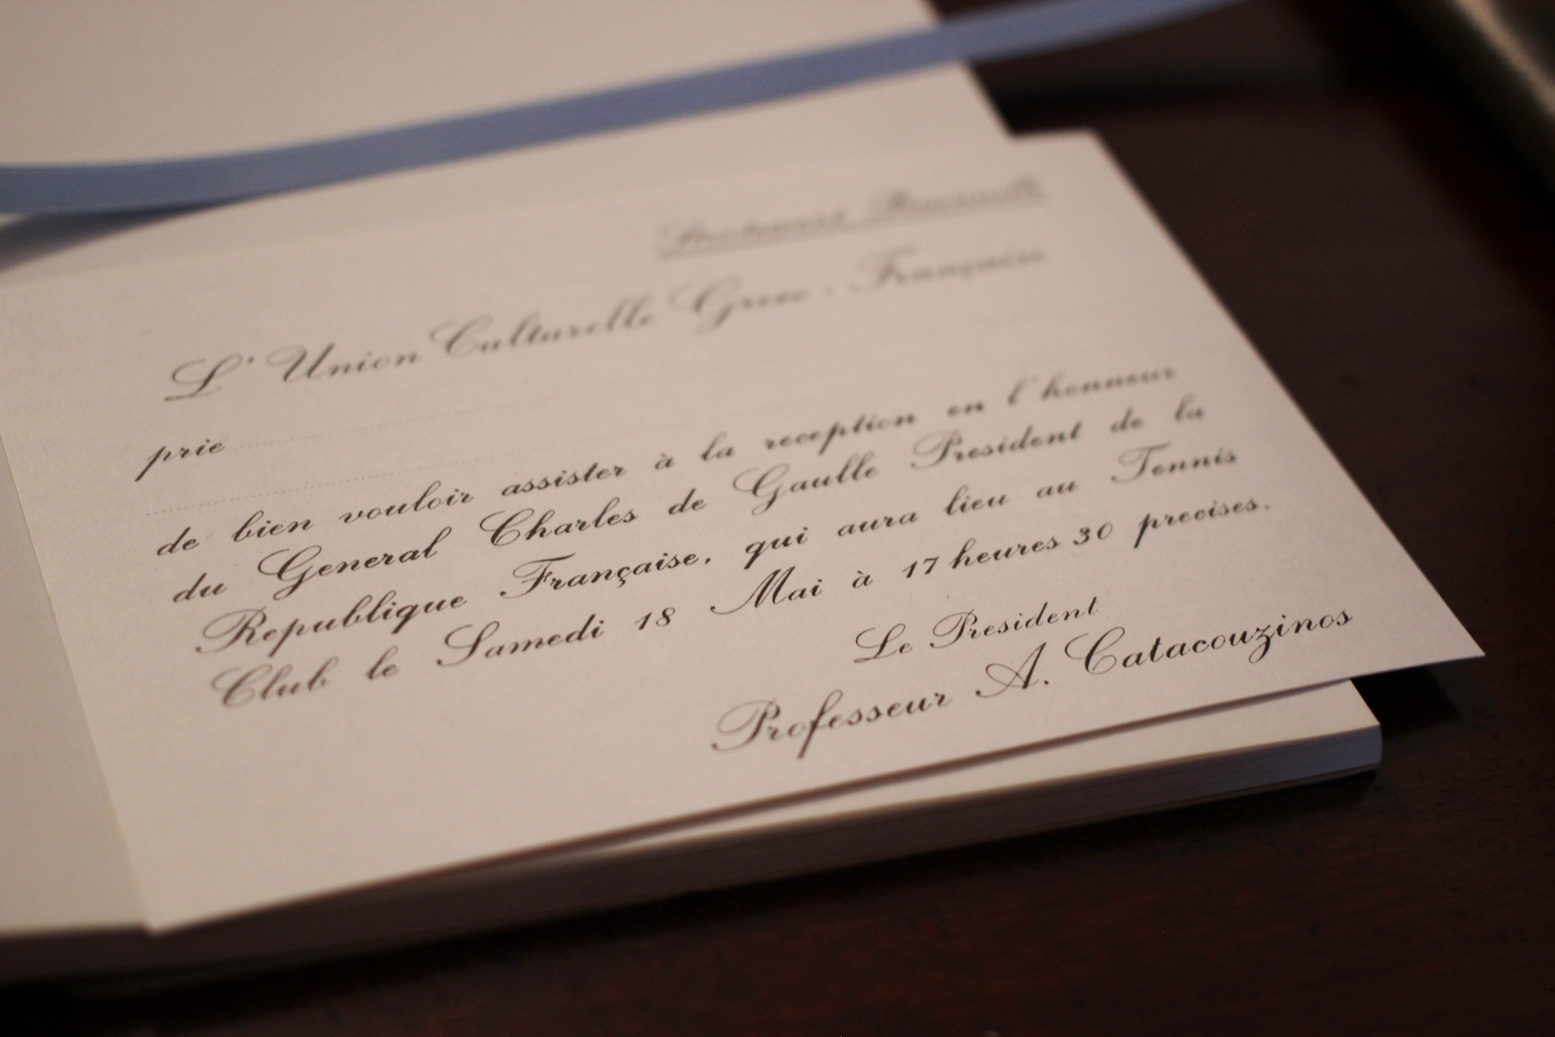 Strictement Personnelle
L' Union Culturelle Greco - Française
prie
de bien vouloir assister à la reception en l' honneur
du General Charles de Gaulle President de la
Republique Française, qui aura lieu au Tennis
Club le Samedi 18 Mai à 17 heures 30 precises.
Le President
Professeur A. Catacouzinos